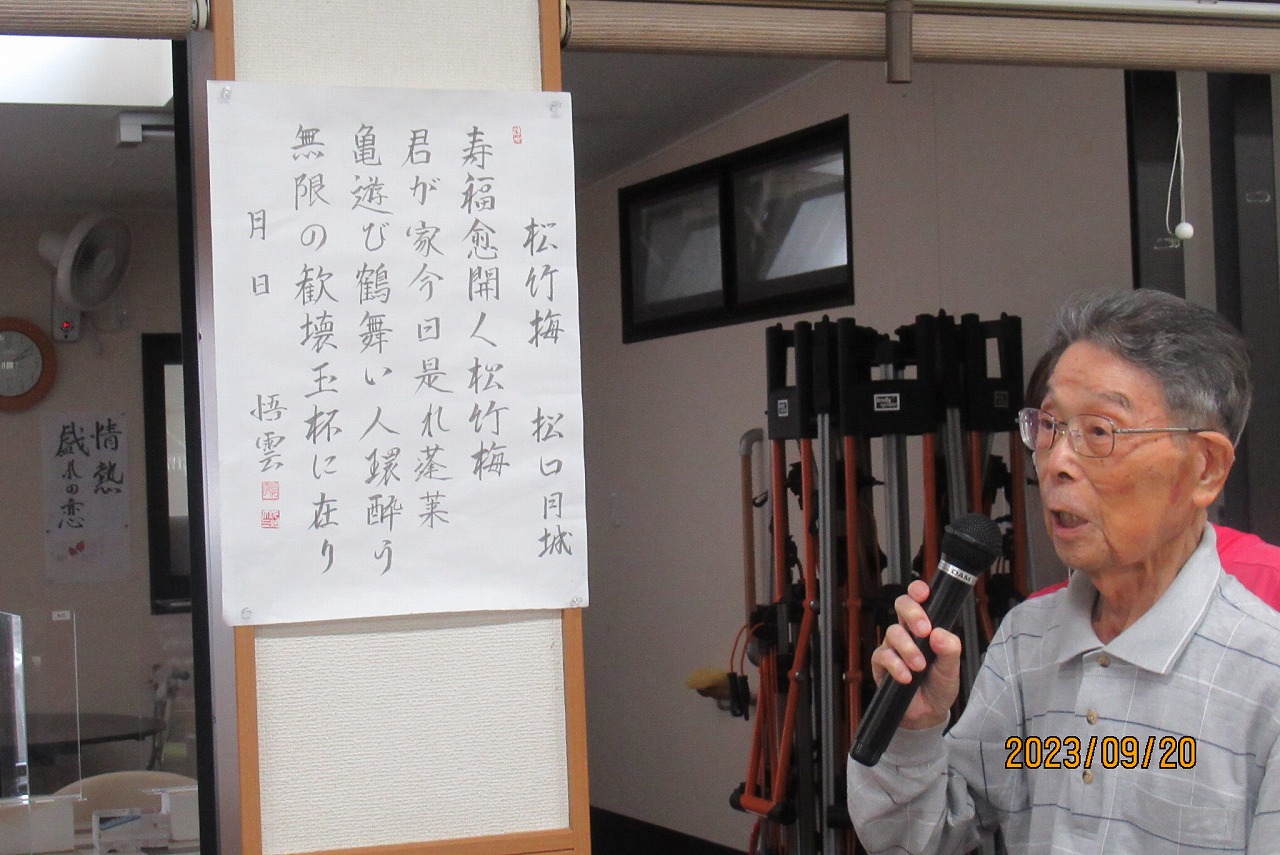 松竹梅 松口月城
寿福愈開人松竹梅
君が家今日是れ蓬莱
亀遊び鶴舞い人環酔う
無限の歓壊玉杯に在り
月日
悟雲
情熱
戯れの恋
DAM
2023/09/20